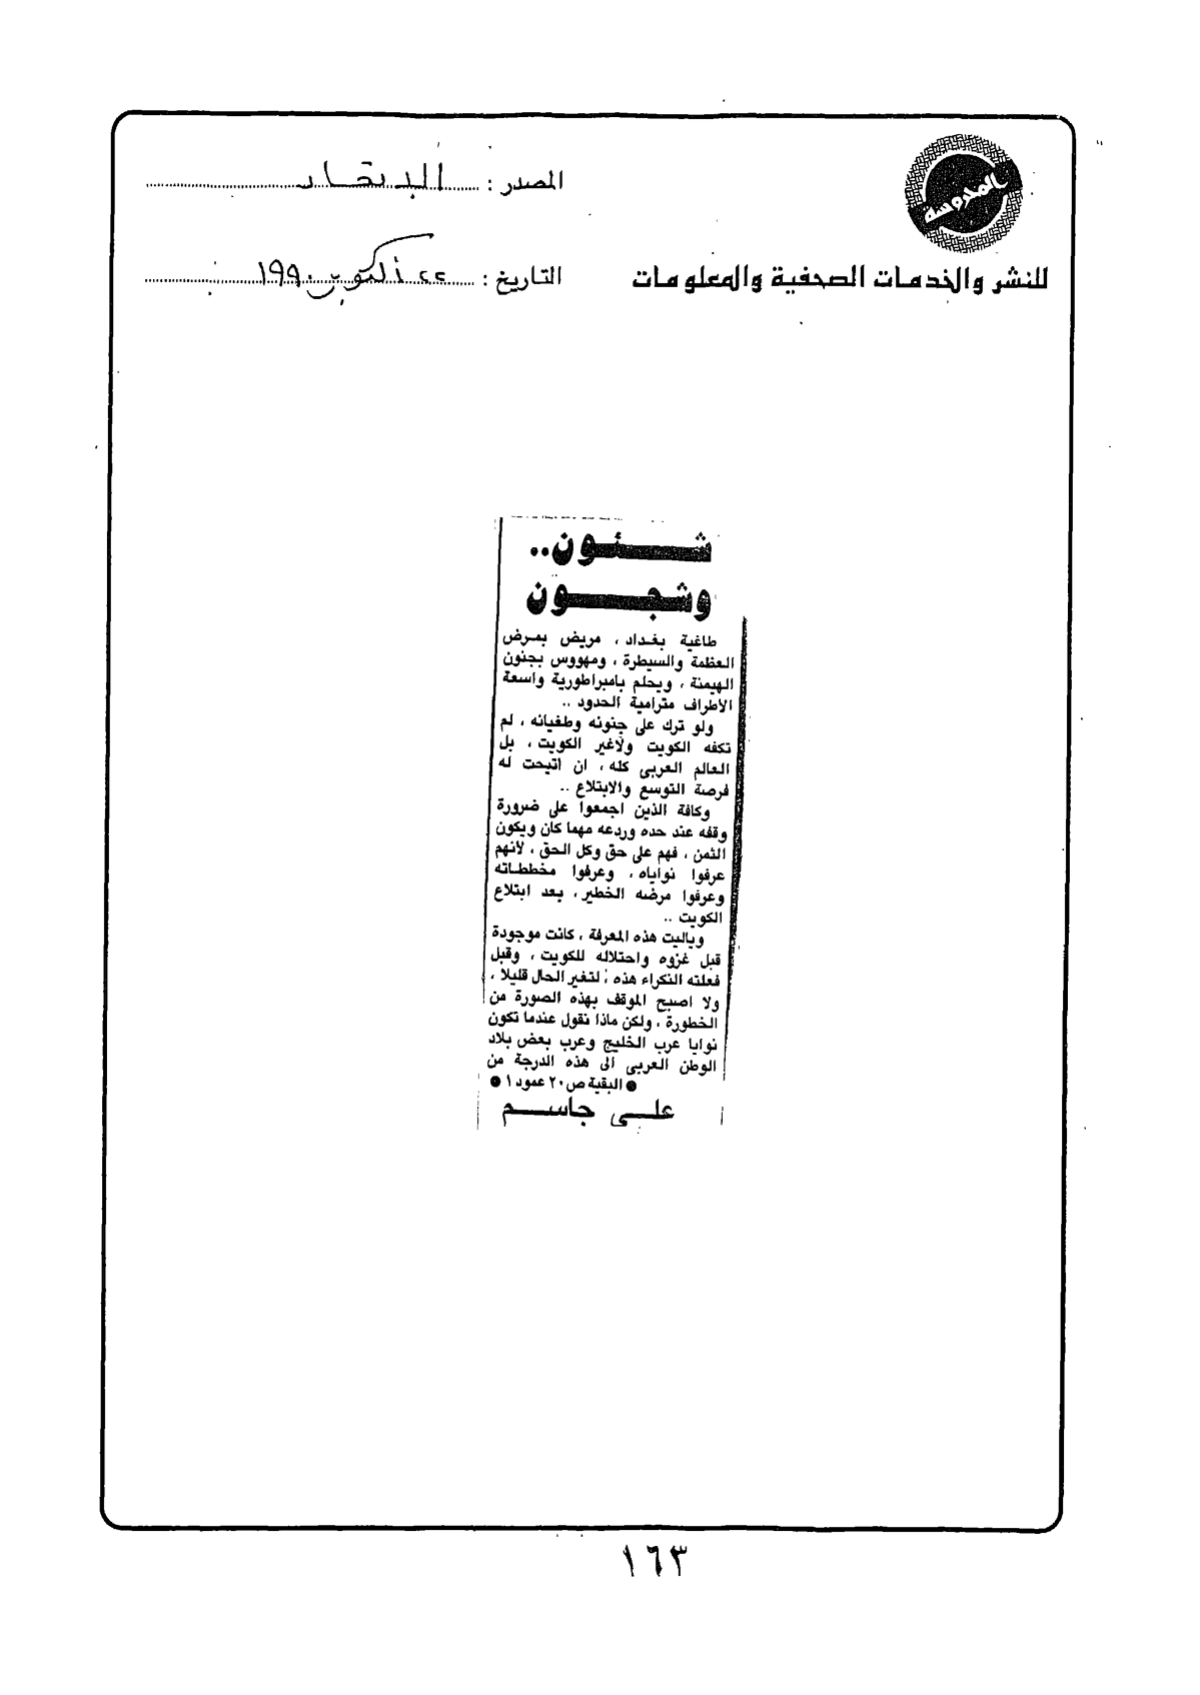 المحروسة
للنشر والخدمات الصحفية والمعلومات
المصدر : الاتحاد
التاريخ : ٢٢ أكتوبر ١٩٩٠
شئون..
وشجون
طاغية بغداد ، مريض بمرض
العظمة والسيطرة ، ومهووس بجنون
الهيمنة ، ويحلم بامبراطورية واسعة
الأطراف مترامية الحدود ..
ولو ترك على جنونه وطغيانه ، لم
تكفه الكويت ولاغير الكويت ، بل
العالم العربى كله ، ان اتيحت له
فرصة التوسع والابتلاع ..
وكافة الذين اجمعوا على ضرورة
وقفه عند حده وردعه مهما كان ويكون
الثمن ، فهم على حق وكل الحق ، لأنهم
عرفوا نواياه ، وعرفوا مخططاته
وعرفوا مرضه الخطير ، بعد ابتلاع
الكويت ..
وياليت هذه المعرفة ، كانت موجودة
قبل غزوه واحتلاله للكويت ، وقبل
فعلته النكراء هذه ، لتغير الحال قليلا ،
ولا اصبح الموقف بهذه الصورة من
الخطورة ، ولكن ماذا نقول عندما تكون
نوايا عرب الخليج وعرب بعض بلاد
الوطن العربى الى هذه الدرجة من
● البقية ص ٢٠ عمود ١ ●
على جاسم
١٦٣